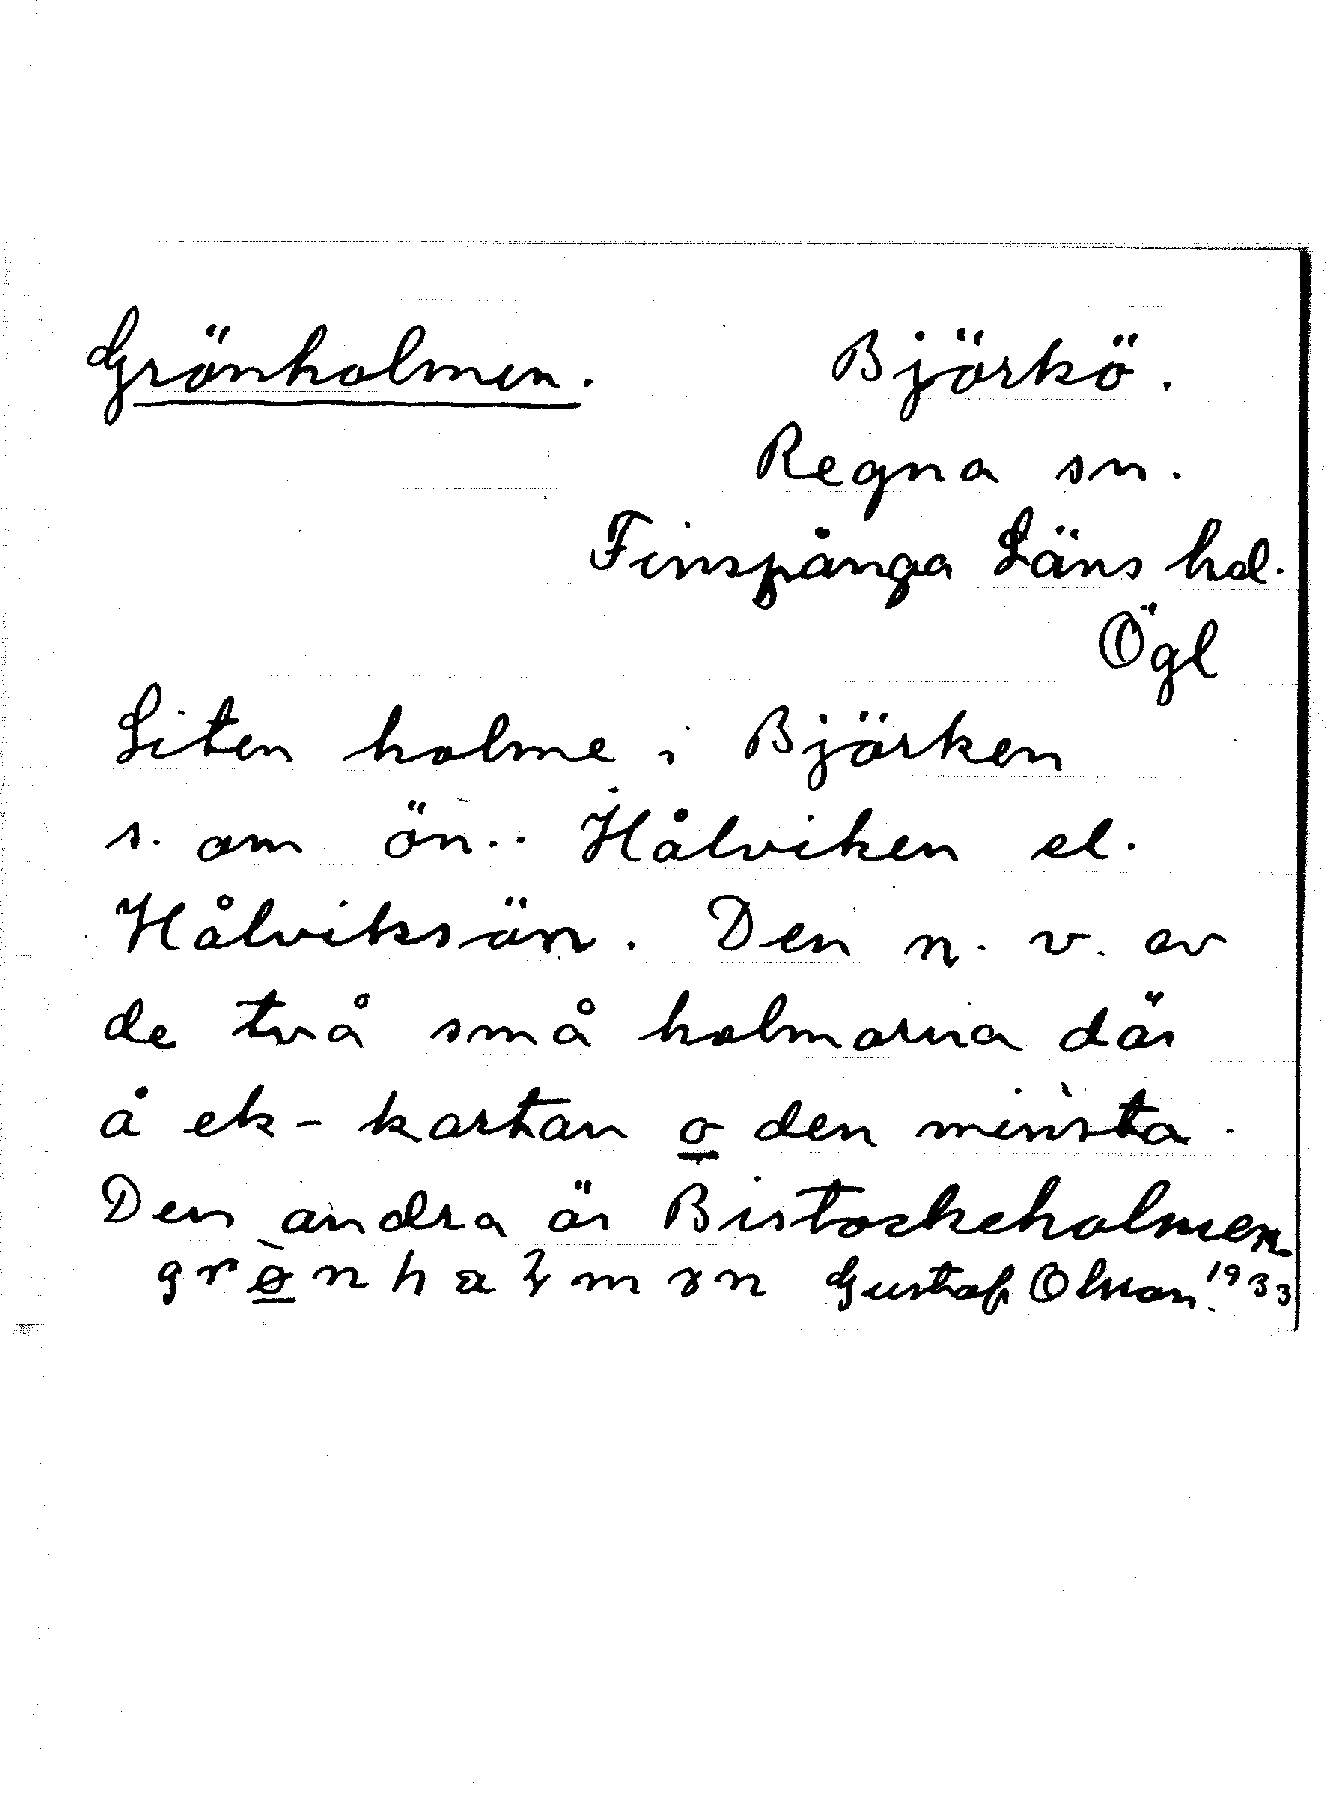 Grönholmen. Björkö.
Regna sn.
Finspånga Läns hd.
Ögl
Liten holme i Björken
s. om ön. Hålviken el.
Hålviksön. Den n. v. av
de två små holmarna där
å ek-kartan o den minsta.
Den andra är Bistockeholmen
Gustaf Olsson 1933